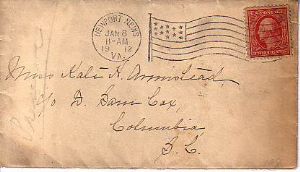 NEWPORT NEWS
JAN 8
8-AM
19 12
VA.
Miss Kate H. Armstead,
c/o D. Sam Cox,
Columbia
S.C.